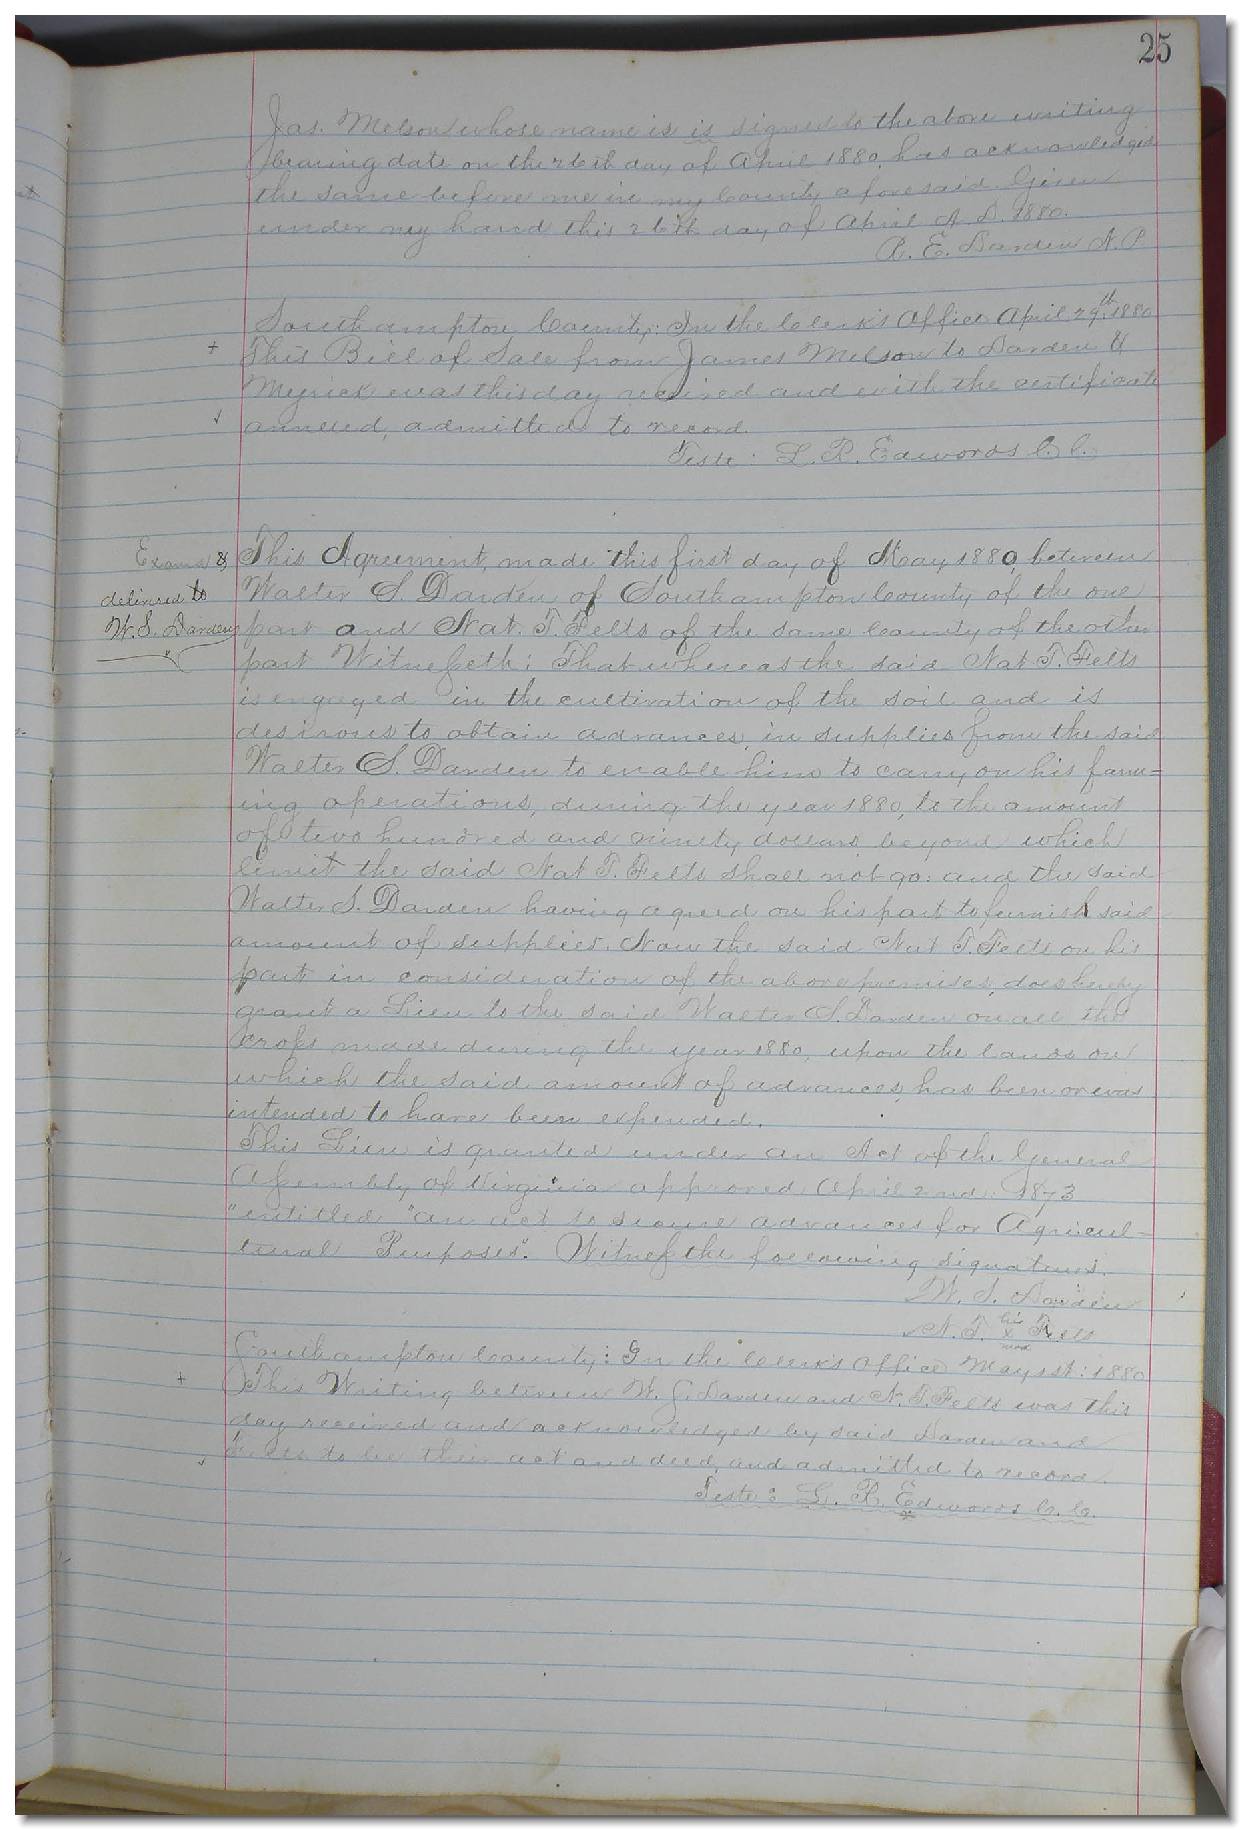 25
Jas. Melson whose name is is signed to the above writing
bearing date on the 26th day of April 1880, has acknowledged
the same before me in my County aforesaid. Given
under my hand this 26th day of April A. D. 1880.
R. E. Darden N. P.
Southampton County: In the Clerk's Office April 29th, 1880
This Bill of Sale from James Melson to Darden &
Myrick was this day received and with the certificate
annexed, admitted to record.
Teste: L. R. Edwards C. C.
Examd &
delivered to
W. S. Darden
This Agreement, made this first day of May 1880, between
Walter S. Darden of Southampton County of the one
part and Nat. T. Felts of the same County of the other
part Witnesseth: That whereas the said Nat T. Felts
is engaged in the cultivation of the soil and is
desirous to obtain advances in supplies from the said
Walter S. Darden to enable him to carry on his farm=
ing operations, during the year 1880, to the amount
of two hundred and ninety dollars beyond which
limit the said Nat T. Felts shall not go: and the said
Walter S. Darden having agreed on his part to furnish said
amount of supplies. Now the said Nat T. Felts on his
part in consideration of the above premises, does hereby
grant a Lien to the said Walter S. Darden on all the
crops made during the year 1880, upon the lands on
which the said amount of advances, has been or was
intended to have been expended.
This Lien is granted under an Act of the General
Assembly of Virginia approved April 2nd. 1873
"entitled "an act to secure advances for Agricul-
tural Purposes". Witness the following signatures.
W. S. Darden
N. T. his x mark Felts
Southampton County: In the Clerk's Office May 1st: 1880
This Writing between W. S. Darden and N. T. Felts was this
day received and acknowledged by said Darden and
Felts to be their act and deed, and admitted to record.
Teste: L. R. Edwards C. C.